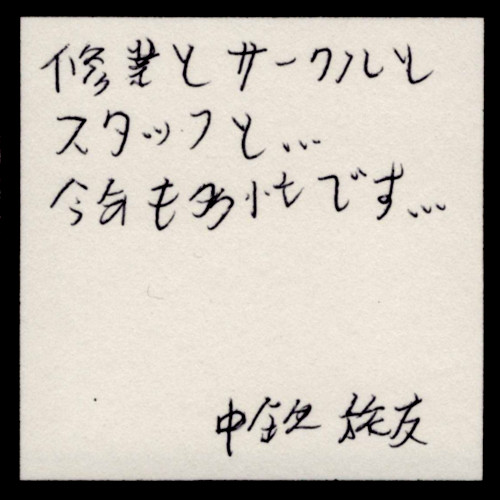 修業とサークルと
スタッフと...
今年も多忙です...